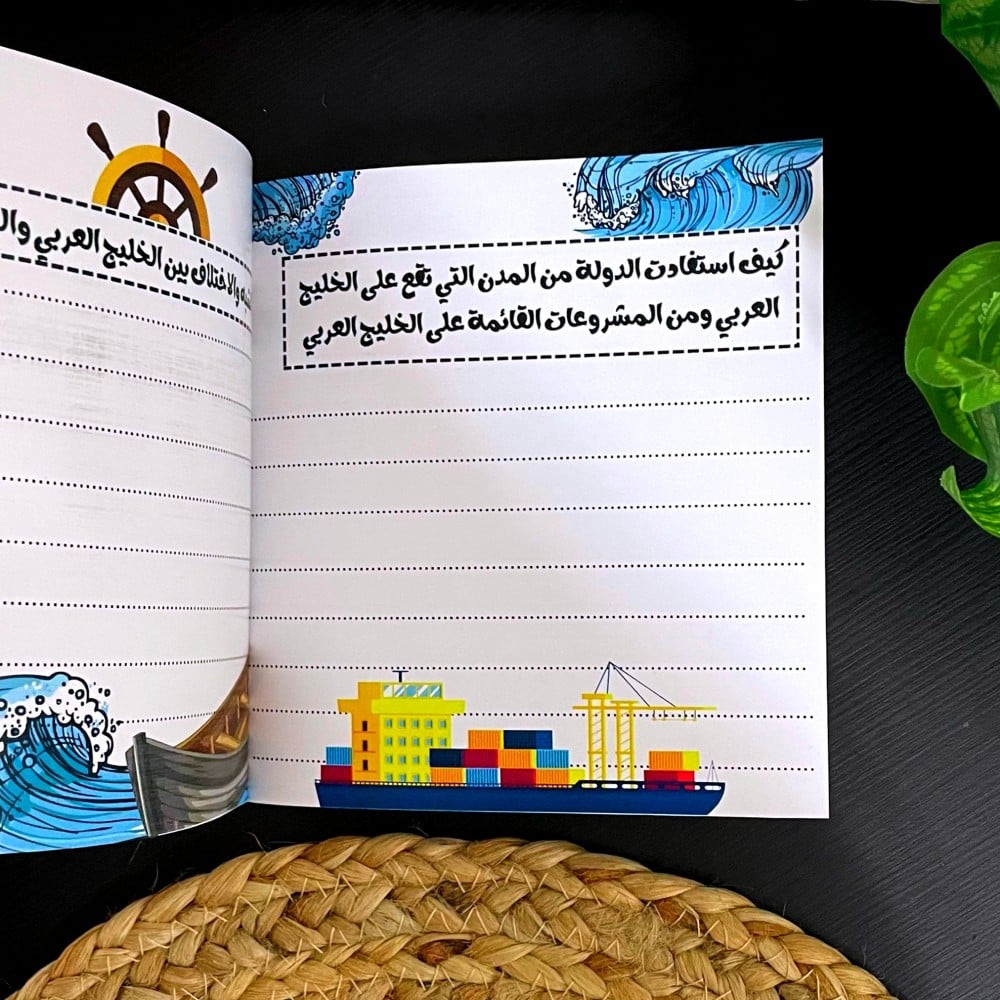 كيف استفادت الدولة من المدن التي تقع على الخليج
العربي ومن المشروعات القائمة على الخليج العربي
والاختلاف بين الخليج العربي